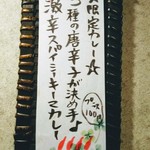 限定カレー☆
3種の唐辛子が決め手♪
激辛スパイシーキーマカレー